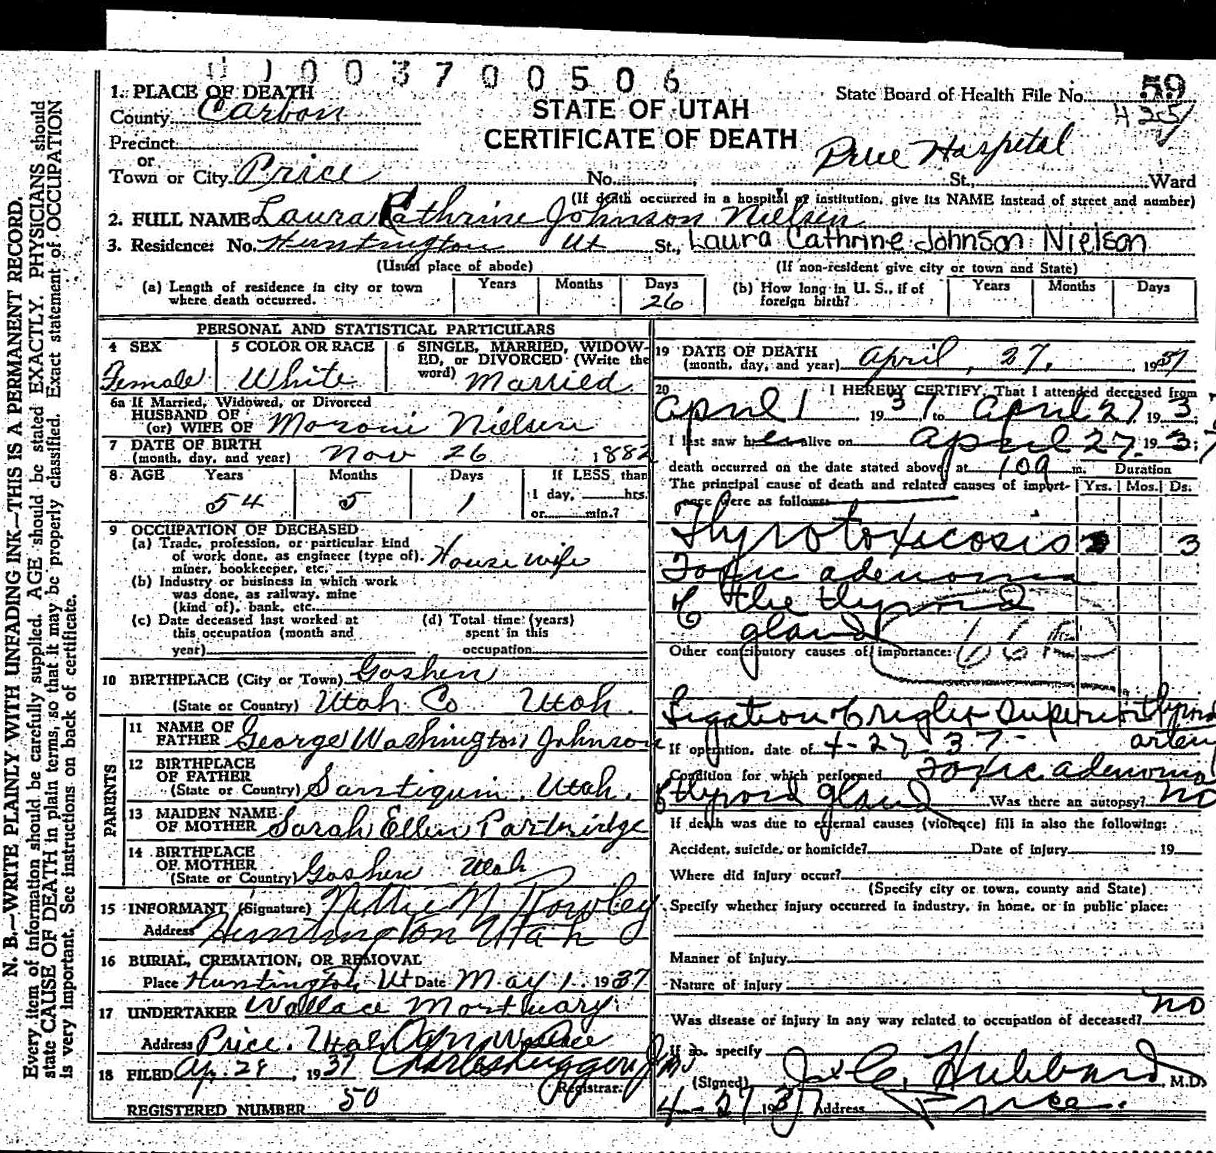 N. B.—WRITE PLAINLY WITH UNFADING INK—THIS IS A PERMANENT RECORD.
Every item of information should be carefully supplied. AGE should be stated EXACTLY. PHYSICIANS should
state CAUSE OF DEATH in plain terms, so that it may be properly classified. Exact statement of OCCUPATION
is very important. See instructions on back of certificate.
0 0 3 7 0 0 5 0 6
1. PLACE OF DEATH
County Carbon
Precinct
or
Town or City Price
STATE OF UTAH
CERTIFICATE OF DEATH
State Board of Health File No. 59
425
Price Hospital
No. St., Ward
(If death occurred in a hospital or institution, give its NAME instead of street and number)
2. FULL NAME Laura Cathrine Johnson Nielsen
3. Residence: No. Huntington Ut St., Laura Cathrine Johnson Nielson
(Usual place of abode) (If non-resident give city or town and State)
(a) Length of residence in city or town where death occurred. Years Months Days 26
(b) How long in U. S., if of foreign birth? Years Months Days
PERSONAL AND STATISTICAL PARTICULARS
4 SEX Female
5 COLOR OR RACE White
6 SINGLE, MARRIED, WIDOWED, or DIVORCED (Write the word) Married
6a If Married, Widowed, or Divorced
HUSBAND OF
(or) WIFE OF Moroni Nielsen
7 DATE OF BIRTH
(month, day, and year) Nov 26 1882
8 AGE Years 54 Months 5 Days 1 If LESS than
1 day, hrs.
or min.?
9 OCCUPATION OF DECEASED
(a) Trade, profession, or particular kind
of work done, as engineer (type of),
miner, bookkeeper, etc. House wife
(b) Industry or business in which work
was done, as railway, mine
(kind of), bank, etc.
(c) Date deceased last worked at
this occupation (month and
year)
(d) Total time (years)
spent in this
occupation
10 BIRTHPLACE (City or Town) Goshen
(State or Country) Utah Co Utah.
PARENTS
11 NAME OF
FATHER George Washington Johnson
12 BIRTHPLACE
OF FATHER
(State or Country) Santiquin, Utah.
13 MAIDEN NAME
OF MOTHER Sarah Ellen Partridge
14 BIRTHPLACE
OF MOTHER
(State or Country) Goshen Utah
15 INFORMANT (Signature) Nettie M Rowley
Address Huntington Utah
16 BURIAL, CREMATION, OR REMOVAL
Place Huntington, Ut Date May 1 1937
17 UNDERTAKER Wallace Mortuary
Address Price. Utah Wallace
18 FILED Ap. 28, 1937
Registrar.
REGISTERED NUMBER 50
19 DATE OF DEATH
(month, day, and year) April, 27, 1937
20 I HEREBY CERTIFY, That I attended deceased from
April 1 1937 to April 27 1937
I last saw her alive on April 27 1937
death occurred on the date stated above, at m. Duration
The principal cause of death and related causes of importance were as follows: Yrs. Mos. Ds.
Thyrotoxicosis 3
Toxic adenoma
of the thyroid
gland
Other contributory causes of importance:
Ligation of right superior thyroid
artery
If operation, date of 4-27-37-
Condition for which performed Toxic adenoma
of thyroid gland Was there an autopsy? no
If death was due to external causes (violence) fill in also the following:
Accident, suicide, or homicide? Date of injury 19
Where did injury occur?
(Specify city or town, county and State)
Specify whether injury occurred in industry, in home, or in public place:
Manner of injury
Nature of injury
Was disease or injury in any way related to occupation of deceased? no
If so, specify
(Signed) Hubbard, M.D.
4-27 1937 Address Price.